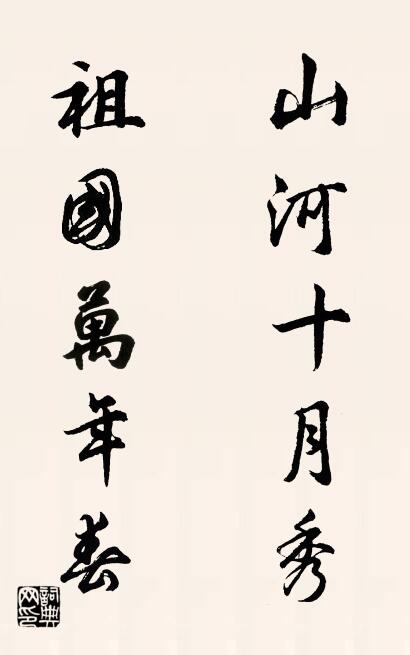 山河十月秀
祖國萬年春
詞典网印